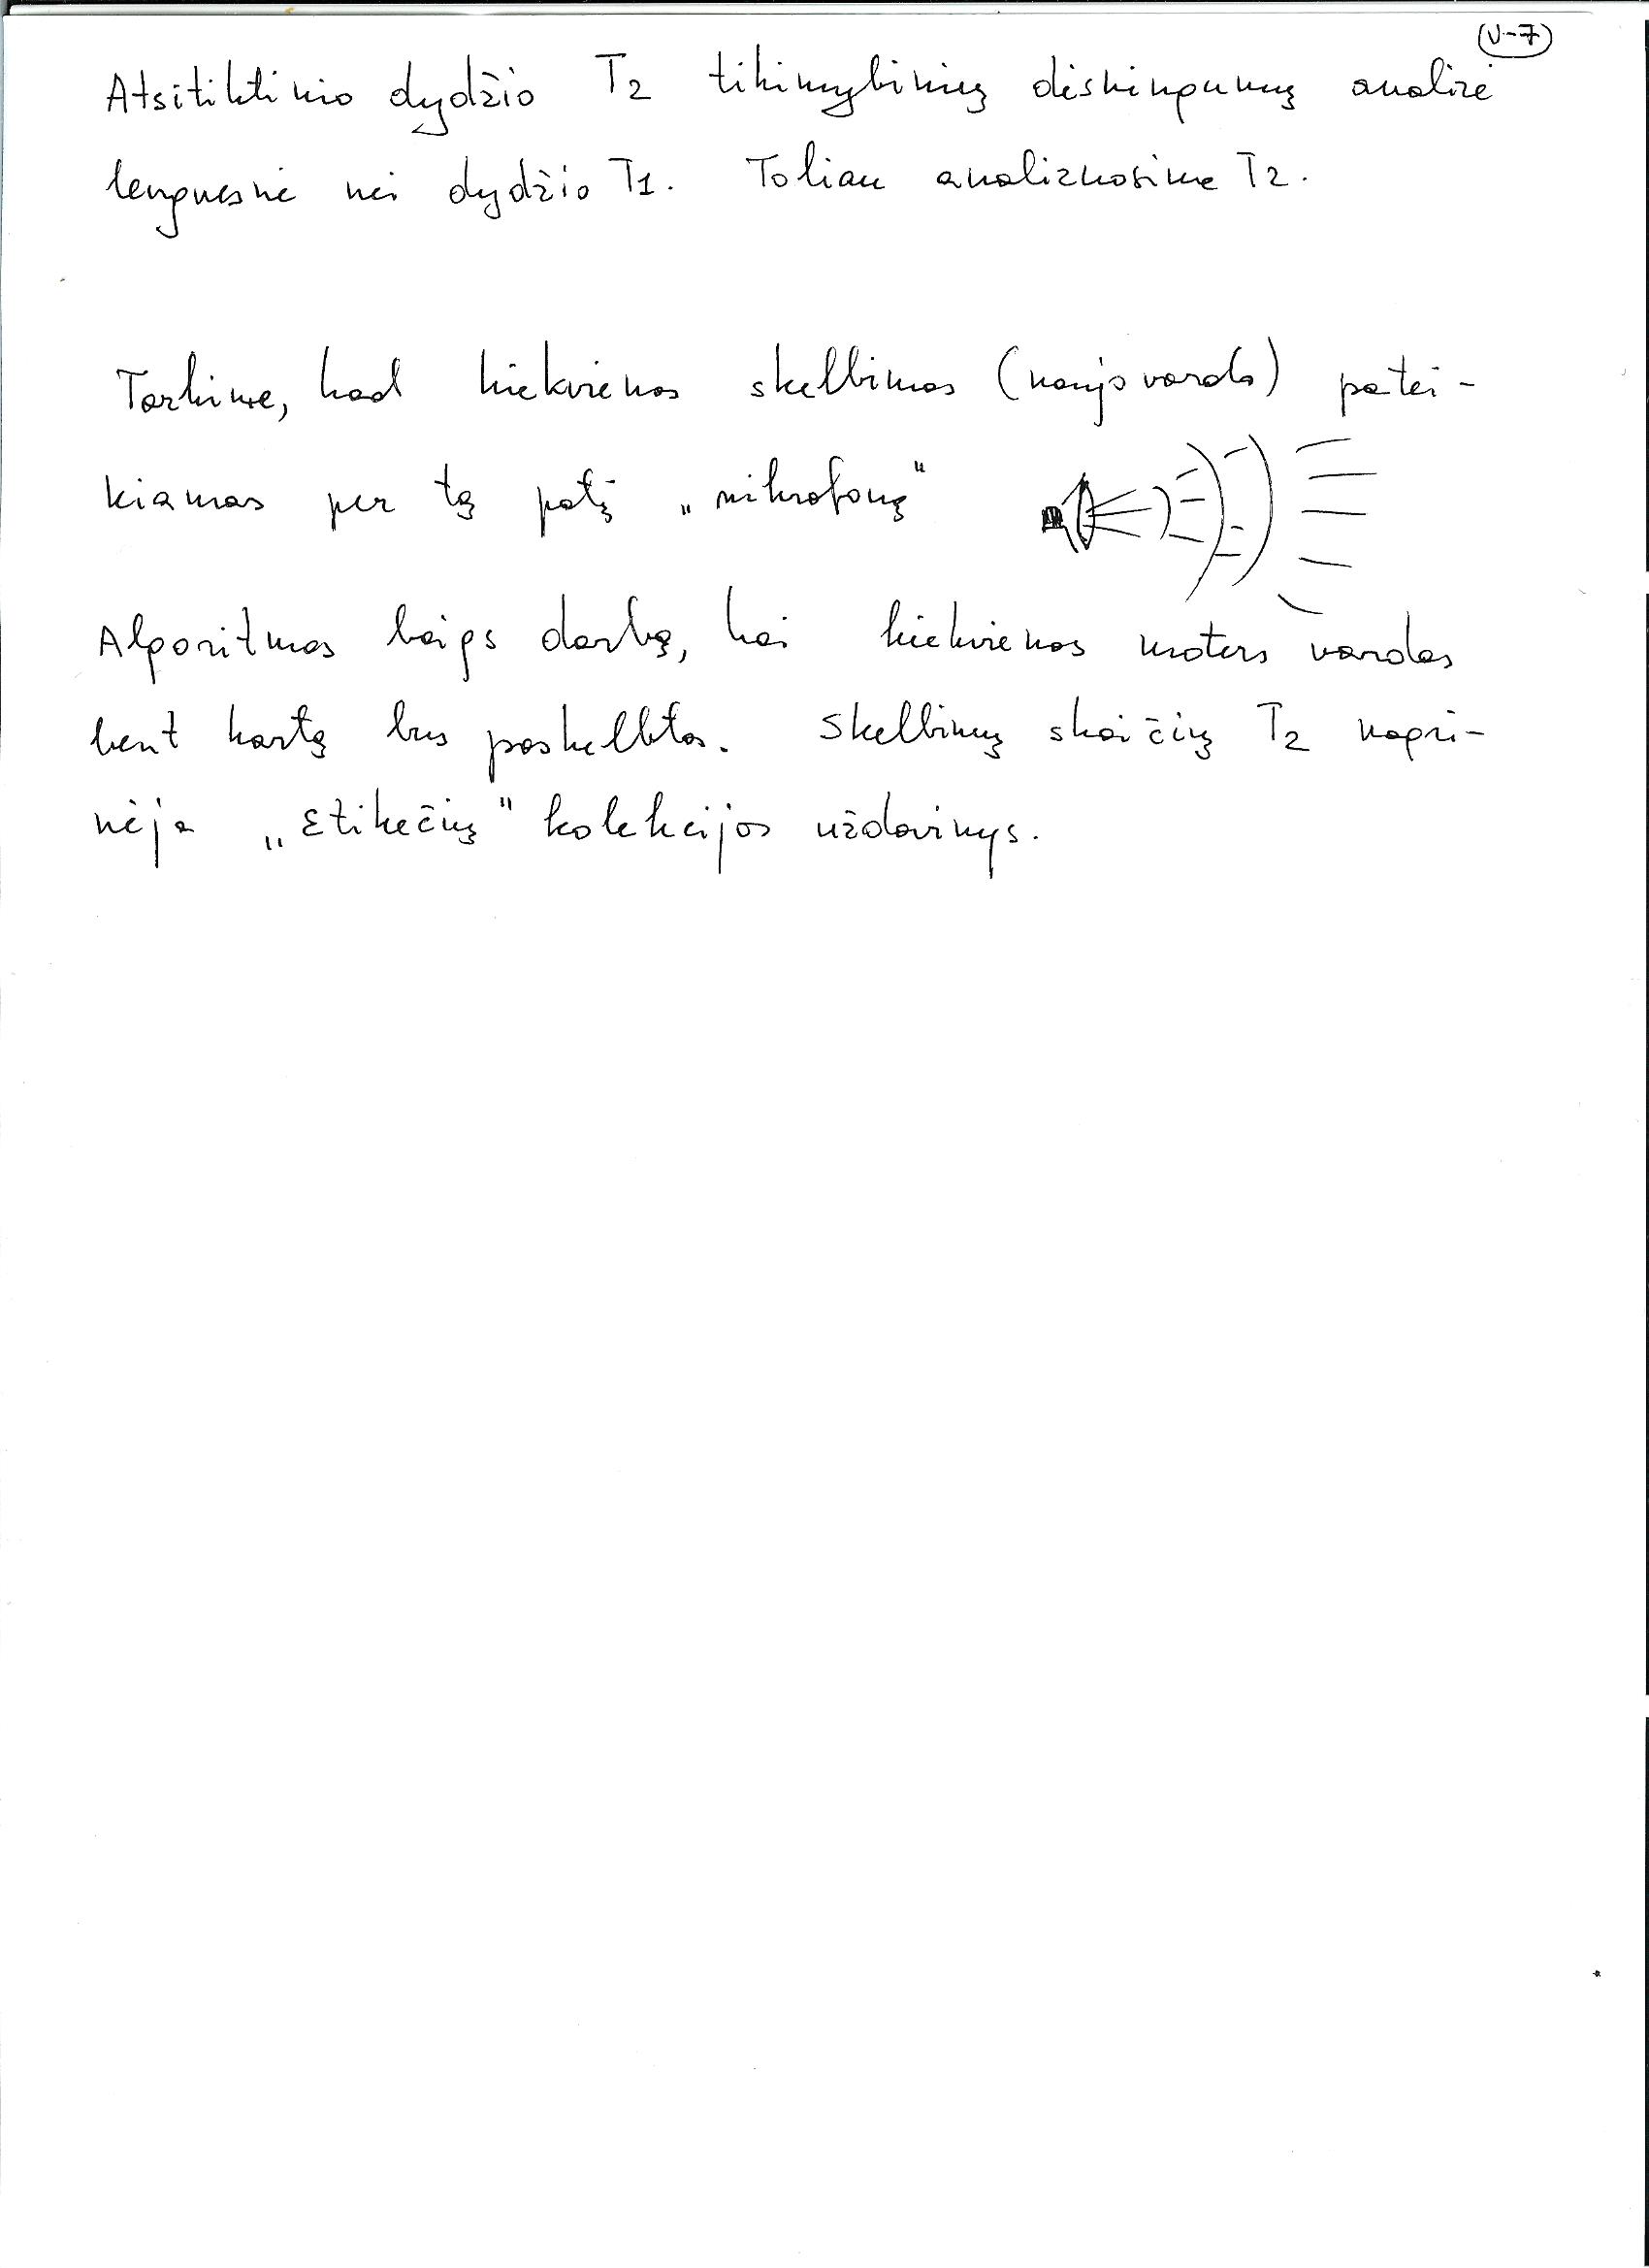 (V-7)
Atsitiktinio dydžio T2 tikimybinių dėsningumų analizė
lengvesnė nei dydžio T1. Toliau analizuosime T2.
Tarkime, kad kiekvienas skelbimas (naujo vardo) patei-
kiamas per tą patį „mikrofoną"
Algoritmas baigs darbą, kai kiekvienos moters vardas
bent kartą bus paskelbtas. Skelbimų skaičių T2 
nėja „Etikečių" kolekcijos uždavinys.